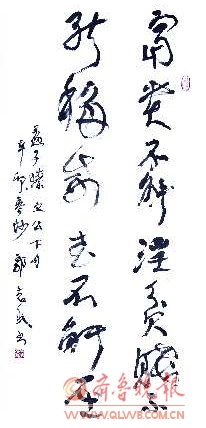 富贵不能淫贫贱不
能移威武不能屈
孟子滕文公下句
辛卯
齐鲁晚报
WWW.QLWB.COM.CN